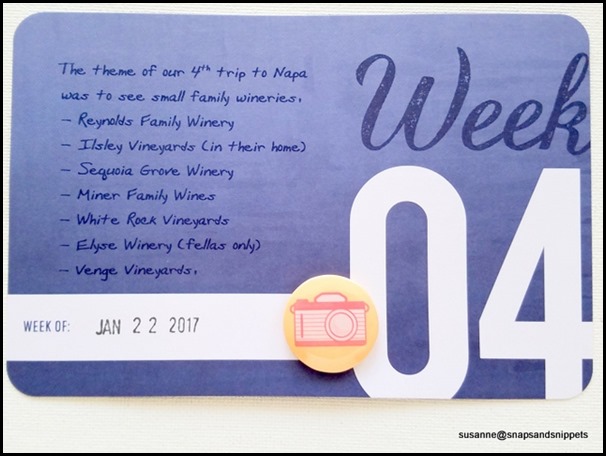 The theme of our 4th trip to Napa
was to see small family wineries.
- Reynolds Family Winery
- Ilsley Vineyards (in their home)
- Sequoia Grove Winery
- Miner Family Wines
- White Rock Vineyards
- Elyse Winery (fellas only)
- Venge Vineyards.
Week
04
WEEK OF: JAN 22 2017
susanne@snapsandsnippets